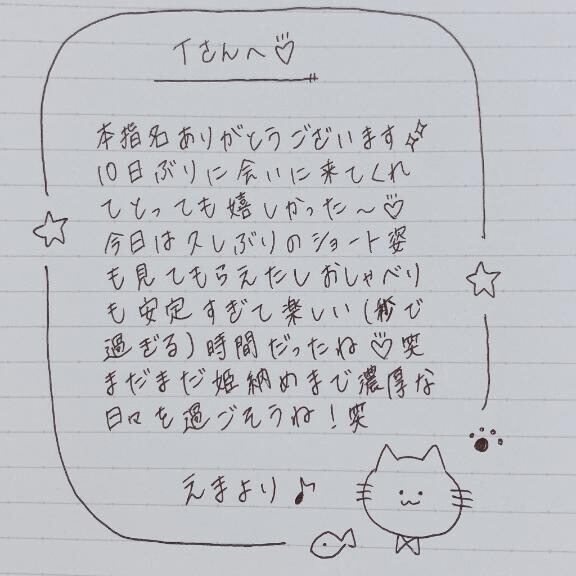 Tさんへ♡
本指名ありがとうございます✨
10日ぶりに会いに来てくれ
てとっても嬉しかった〜♡
今日は久しぶりのショート姿
も見てもらえたしおしゃべり
も安定すぎて楽しい(秒で
過ぎる)時間だったね♡笑
まだまだ姫納めまで濃厚な
日々を過ごそうね!笑
えまより♪